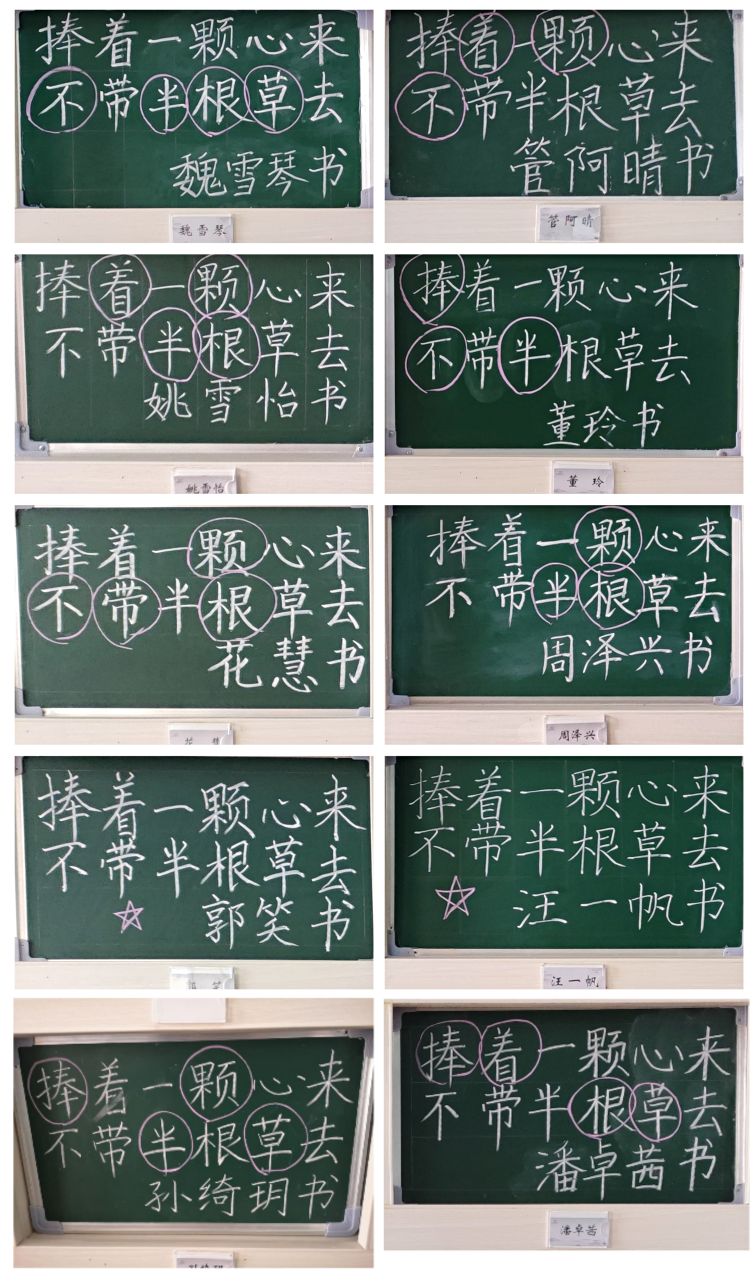 捧着一颗心来
不带半根草去
魏雪琴书
魏雪琴
捧着一颗心来
不带半根草去
管阿晴书
管阿晴
捧着一颗心来
不带半根草去
姚雪怡书
姚雪怡
捧着一颗心来
不带半根草去
董玲书
董玲
捧着一颗心来
不带半根草去
花慧书
捧着一颗心来
不带半根草去
周泽兴书
周泽兴
捧着一颗心来
不带半根草去
郭笑书
捧着一颗心来
不带半根草去
汪一帆书
汪一帆
捧着一颗心来
不带半根草去
孙绮玥书
捧着一颗心来
不带半根草去
潘卓茜书
潘卓茜